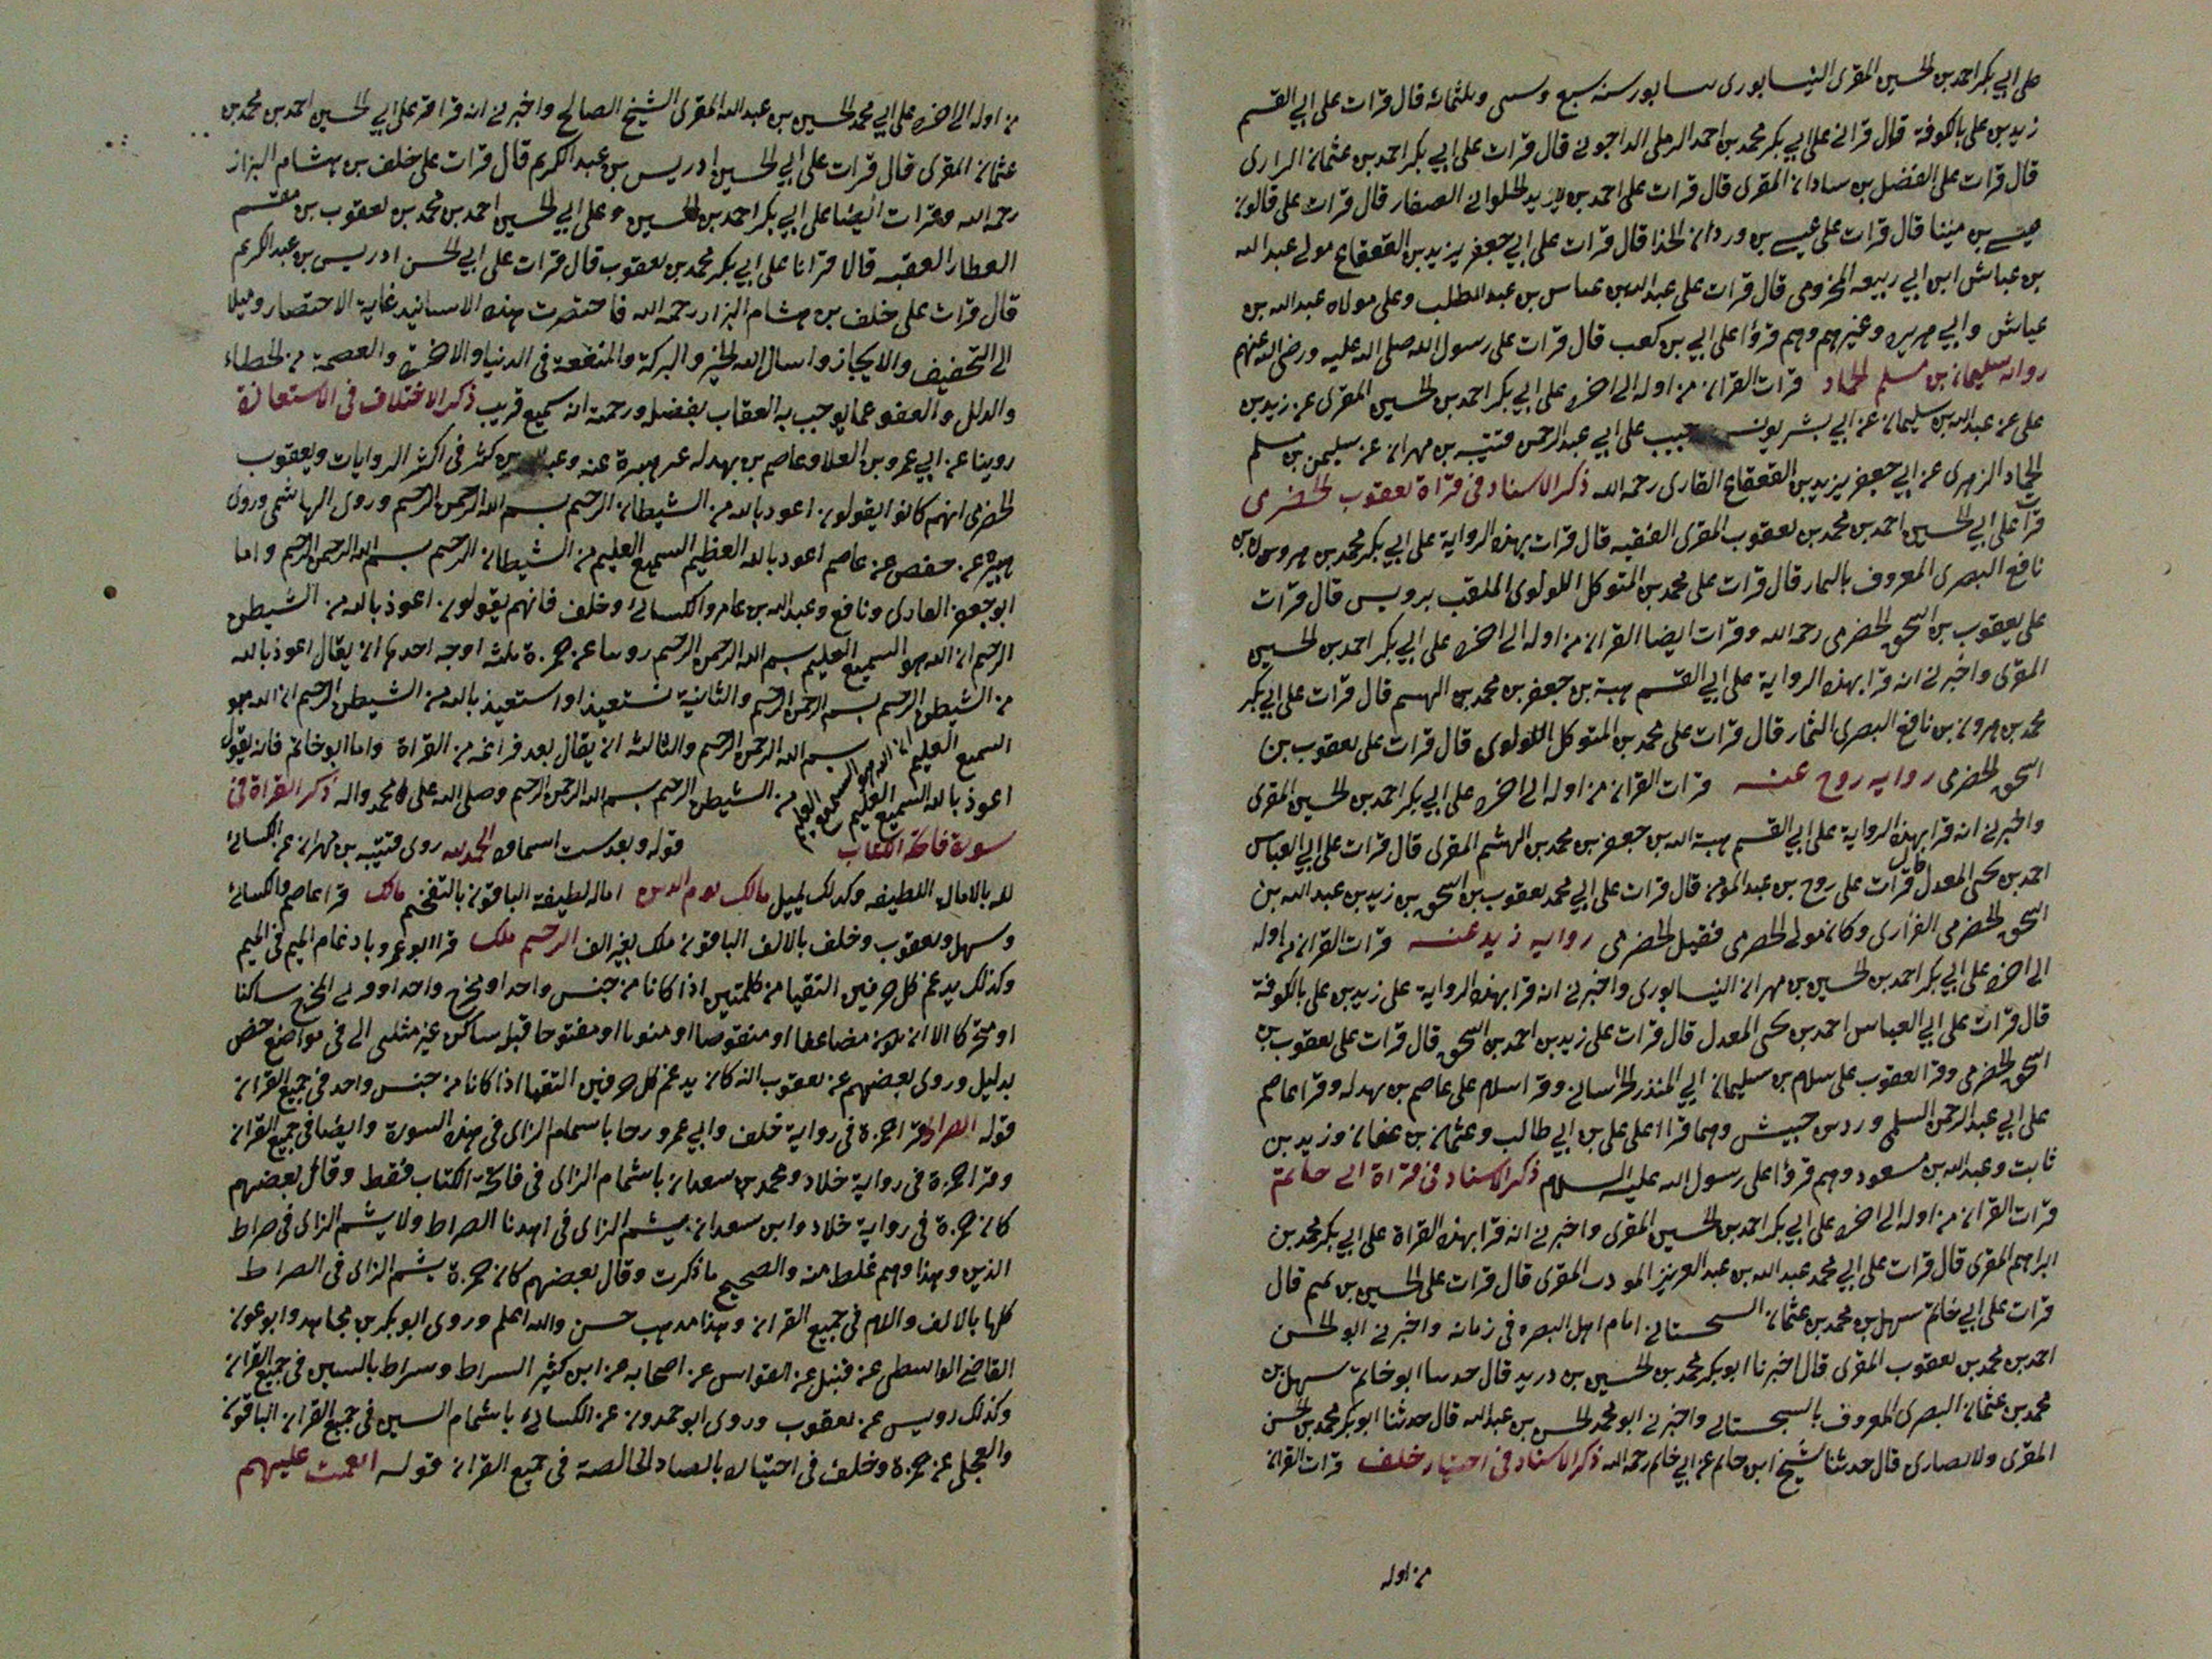 على ابي بكر احمد بن الحسين المقرى النيسابورى سابور سنه سبع وسىں وثلثمائه قال قرات على ابي القسم
زيد بن على بالكوفة قال قراني على ابي بكر محمد بن احمد الرملى الداجونى قال قرات على ابي بكر احمد بن عثمان الرارى
قال قرات على الفضل بن سادان المقرى قال قرات على احمد بن يزيد الحلوانى الصفار قال قرات على قالون
عيسى بن مينا قال قرات على عيسى بن وردان الحذا قال قرات على ابي جعفر يزيد بن القعقاع مولى عبد الله
بن عياش ابن ابي ربيعه المخزومى قال قرات على عبد الله بن عباس بن عبد المطلب وعلى مولاه عبد الله بن
عياش وابي هريره وغيرهم وهم قرؤا على ابي بن كعب قال قرات على رسول الله صلى الله عليه ورضى الله عنهم
روايه سليمان بن مسلم الجماد قرات القران من اوله الى اخره على ابي بكر احمد بن الحسين المقرى عن زيد بن
على عن عبد الله بن سليمان عن ابي بشر يونس حبيب على ابي عبد الرحمن قتيبه بن مهران عن سليمن بن مسلم
الجماد الزهرى عن ابي جعفر يزيد بن القعقاع القارى رحمه الله ذكر الاسناد فى قراة يعقوب الحضرمى
قرات على ابي الحسين احمد بن محمد بن يعقوب المقرى الفقيه قال قرات بهذه الرواية على ابي بكر محمد بن هرون بن
نافع البصرى المعروف بالتمار قال قرات على محمد بن المتوكل اللولوى الملقب برويس قال قرات
على يعقوب بن اسحق الحضرمى رحمه الله وقرات ايضا القران من اوله الى اخره على ابي بكر احمد بن الحسين
المقرى واخبرنى انه قرا بهذه الرواية على ابي القسم هبة بن جعفر بن محمد بن الهيسم قال قرات على ابي بكر
محمد بن هرون بن نافع البصرى التمار قال قرات على محمد بن المتوكل اللولوى قال قرات على يعقوب بن
اسحق الحضرمى روايه روح عنه قرات القران من اوله الى اخره على ابي بكر احمد بن الحسين المقرى
واخبرنى انه قرا بهذه الرواية على ابي القسم هبة الله بن جعفر بن محمد بن الهشيم المقرى قال قرات على ابي العباس
احمد بن يحيى المعدل قال قرات على روح بن عبد المؤمن قال قرات على ابي محمد يعقوب بن اسحق بن زيد بن عبد الله بن
اسحق الحضرمى القرارى وكان مولى الحضرمى فقيل الحضرمى روايه زيد عنه قرات القران من اوله
الى اخره على ابي بكر احمد بن الحسين بن مهران النيسابورى واخبرنى انه قرا بهذه الرواية على زيد بن على بالكوفة
قال قرات على ابي العباس احمد بن يحيى المعدل قال قرات على زيد بن احمد بن اسحق قال قرات على يعقوب بن
اسحق الحضرمى وقرا يعقوب على سلام بن سليمان ابي المنذر الخراسانى وقرا سلام على عاصم بن بهدله وقرا عاصم
على ابي عبد الرحمن السلمى وزر بن حبيش وهما قراا على على بن ابي طالب وعثمان بن عفان وزيد بن
ثابت وعبد الله بن مسعود وهم قرؤا على رسول الله عليه السلام ذكر الاسناد فى قراة ابى حاتم
قرات القران من اوله الى اخره على ابي بكر احمد بن الحسين المقرى واخبرنى انه قرا بهذه القراة على ابي بكر محمد بن
ابراهيم المقرى قال قرات على ابي محمد عبد الله بن عبد العزيز المودب المقرى قال قرات على الحسين بن تميم قال
قرات على ابي حاتم سهل بن محمد بن عثمان السجستانى امام اهل البصره فى زمانه واخبرنى ابو الحسن
احمد بن محمد بن يعقوب المقرى قال اخبرنا ابو بكر محمد بن الحسين بن دريد قال حدثنا ابو حاتم سهل بن
محمد بن عثمان البصرى المعروف بالسجستانى واخبرنى ابو محمد الحسن بن عبد الله قال حدثنا ابو بكر محمد بن الحسن
المقرى والانصارى قال حدثنا شيخ ابن حاتم عن ابي حاتم رحمه الله ذكر الاسناد فى اختيار خلف قرات القران
من اوله
من اوله الى اخره على ابي محمد الحسين بن عبد الله المقرى الشيخ الصالح واخبرنى انه قرا على ابي الحسين احمد بن محمد بن
عثمان المقرى قال قرات على ابي الحسين ادريس بن عبد الكريم قال قرات على خلف بن هشام البزاز
رحمه الله وقرات ايضا على ابي بكر احمد بن الحسين وعلى ابي الحسين احمد بن محمد بن يعقوب بن مقسم
العطار الفقيه قالا قرانا على ابي بكر محمد بن يعقوب قال قرات على ابي الحسن ادريس بن عبد الكريم
قال قرات على خلف بن هشام البزار رحمه الله فاختصرت هذه الاسانيد غاية الاختصار وميلا
الى التخفيف والايجاز واسال الله الخير والبركة والمنفعة فى الدنيا والاخرة والعصمة من الخطاء
والزلل والعفو عما يوجب به العقاب بفضله ورحمته انه سميع قريب ذكر الاختلاف فى الاستعاذة
روينا عن ابي عمرو بن العلا وعاصم بن بهدله عن هبيرة عنه وعبد الله بن كثير فى اكثر الروايات ويعقوب
الحضرمى انهم كانوا يقولون اعوذ بالله من الشيطان الرجيم بسم الله الرحمن الرحيم وروى الهاشمى وروى
هبيرة عن حفص عن عاصم اعوذ بالله العظيم السميع العليم من الشيطان الرجيم بسم الله الرحمن الرحيم واما
ابو جعفر القارى ونافع وعبد الله بن عامر والكسائى وخلف فانهم يقولون اعوذ بالله من الشيطن
الرجيم ان الله هو السميع العليم بسم الله الرحمن الرحيم روينا عن حمزة ثلثه اوجه احدها ان يقال اعوذ بالله
من الشيطن الرجيم بسم الله الرحمن الرحيم والثانية نستعيذ او استعيذ بالله من الشيطن الرجيم ان الله هو
السميع العليم بسم الله الرحمن الرحيم والثالثه ان يقال بعد فراغه من القراة واما ابو حاتم فانه يقول
اعوذ بالله السميع العليم ان الله هو السميع العليم من الشيطن الرجيم بسم الله الرحمن الرحيم وصلى الله على محمد واله ذكر القراة فى
سورة فاتحة الكتاب قوله وبعد ست الحمد لله روى قتيبه بن مهران عن الكسائى
لله بالاماله اللطيفه وكذلك يميل مالك يوم الدين اماله لطيفة الباقون بالتفخيم مالك قرا عاصم والكسائى
وسهل ويعقوب وخلف بالالف الباقون ملك بغير الف الرحيم ملك قرا ابو عمرو بادغام الميم فى الميم
وكذلك يدغم كل حرفين التقيا من كلمتين اذا كانا من جنس واحد او مخرج واحد او قريبى المخرج ساكنا
او متحركا الا ان يكون مضاعفا او منقوصا او منونا او مفتوحا قبله ساكن غير مثلين الى فى مواضع خص
بدليل وروى بعضهم عن يعقوب انه كان يدغم كل حرفين التقيا اذا كانا من جنس واحد فى جميع القران
قوله الصراط قرا حمزة فى رواية خلف وابي عمرو رحا باشمام الزاى فى هذه السورة وايضا فى جميع القران
وقرا حمزة فى رواية خلاد ومحمد بن سعدان باشمام الزاى فى فاتحة الكتاب فقط وقال بعضهم
كان حمزة فى رواية خلاد وابن سعدان يشم الزاى فى اهدنا الصراط ولا يشم الزاى فى صراط
الذين وهذا وهم غلط منه والصحيح ما ذكرت وقال بعضهم كان حمزة يشم الزاى فى الصراط
كلها بالالف واللام فى جميع القران وهذا مذهب حسن والله اعلم وروى ابو بكر بن مجاهد وابو عون
القاضى الواسطى عن قنبل عن القواس عن اصحابه عن ابن كثير السراط وسراط بالسين فى جميع القران
وكذلك رويس عن يعقوب وروى ابو حمدون عن الكسائى باشمام السين فى جميع القران الباقون
والعجلى عن حمزة وخلف فى اختياره بالصاد الخالصة فى جميع القران قوله انعمت عليهم